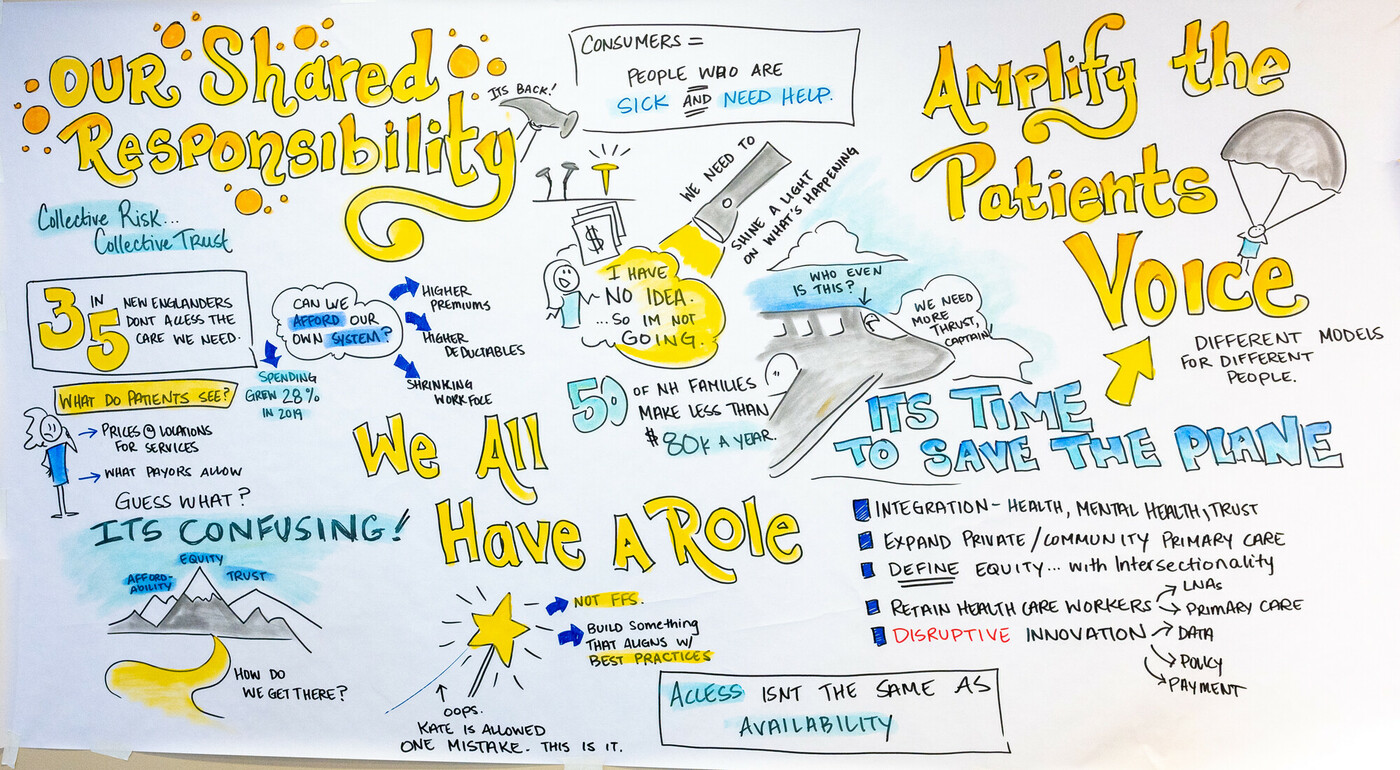 OUR Shared
Responsibility
ITS BACK!
Collective Risk...
Collective Trust
3 IN 5
NEW ENGLANDERS
DONT ACCESS THE
CARE WE NEED.
CAN WE
AFFORD OUR
OWN SYSTEM?
HIGHER
PREMIUMS
HIGHER
DEDUCTABLES
SHRINKING
WORK FOLE
SPENDING
GREW 28%
IN 2019
WHAT DO PATIENTS SEE?
PRICES @ LOCATIONS
FOR SERVICES
WHAT PAYORS ALLOW
GUESS WHAT?
ITS CONFUSING!
EQUITY
AFFORD-
ABILITY
TRUST
HOW DO
WE GET THERE?
CONSUMERS =
PEOPLE WHO ARE
SICK AND NEED HELP.
$
WE NEED TO
SHINE A LIGHT
ON WHAT'S HAPPENING
I HAVE
NO IDEA.
...SO IM NOT
GOING.
50 OF NH FAMILIES
MAKE LESS THAN
$80K A YEAR.
We All
Have A Role
NOT FFS.
BUILD Something
THAT ALIGNS W/
BEST PRACTICES
OOPS.
KATE IS ALLOWED
ONE MISTAKE. THIS IS IT.
ACCESS ISNT THE SAME AS
AVAILABILITY
Amplify the
Patients
Voice
DIFFERENT MODELS
FOR DIFFERENT
PEOPLE.
WHO EVEN
IS THIS?
WE NEED
MORE
THRUST,
CAPTAIN!
ITS TIME
TO SAVE THE PLANE
INTEGRATION - HEALTH, MENTAL HEALTH, TRUST
EXPAND PRIVATE / COMMUNITY PRIMARY CARE
DEFINE EQUITY... with Intersectionality
RETAIN HEALTH CARE WORKERS
LNAs
PRIMARY CARE
DISRUPTIVE INNOVATION
DATA
POLICY
PAYMENT